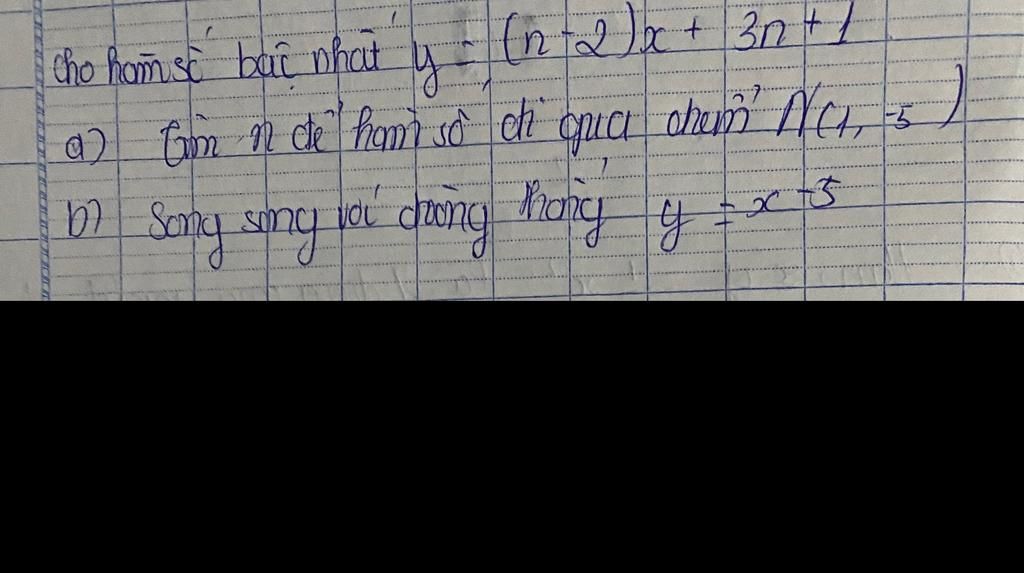 cho hàm số bậc nhất y = (n-2)x + 3n+1
a) Tìm n để hàm số đi qua điểm N(1, -5)
b) Song song với đường thẳng y = x-5